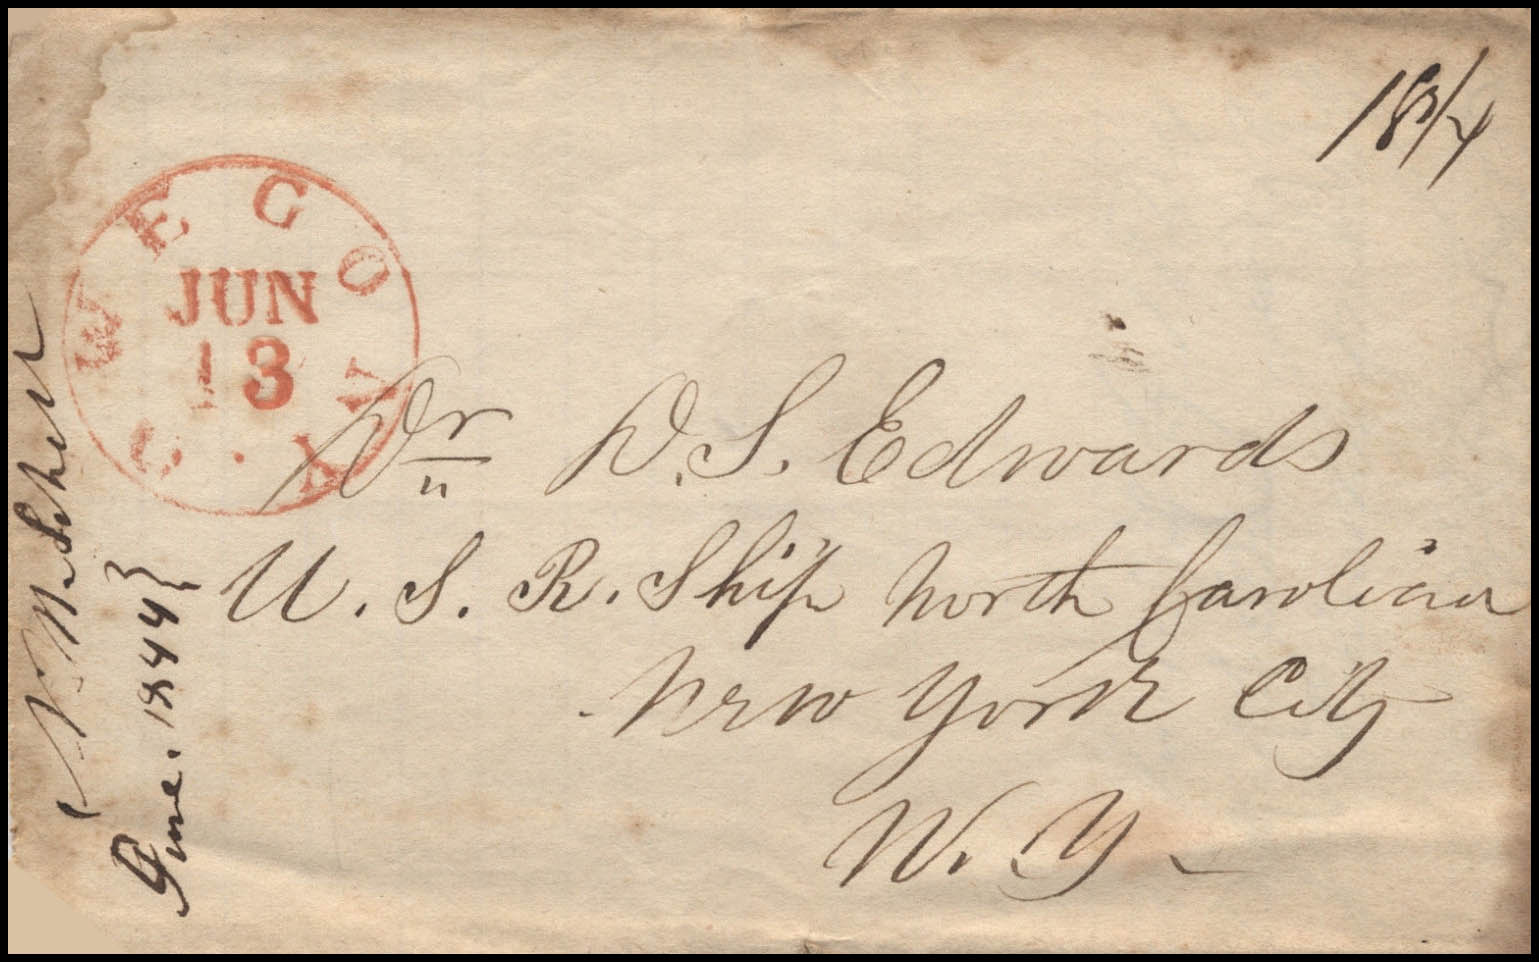 18 3/4
OWEGO N.Y.
JUN
13
Dr D. S. Edwards
U. S. R. Ship North Carolina
New York City
N. Y.
June. 1844}